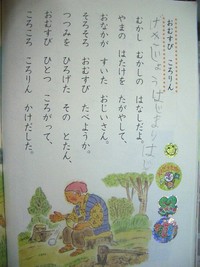 おむすび ころりん
むかし むかしの はなしだよ。
やまの はたけを たがやして、
おなかが すいた おじいさん。
そろそろ おむすび たべようか。
つつみを ひろげた その とたん、
おむすび ひとつ ころがって、
ころころ ころりん かけだした。